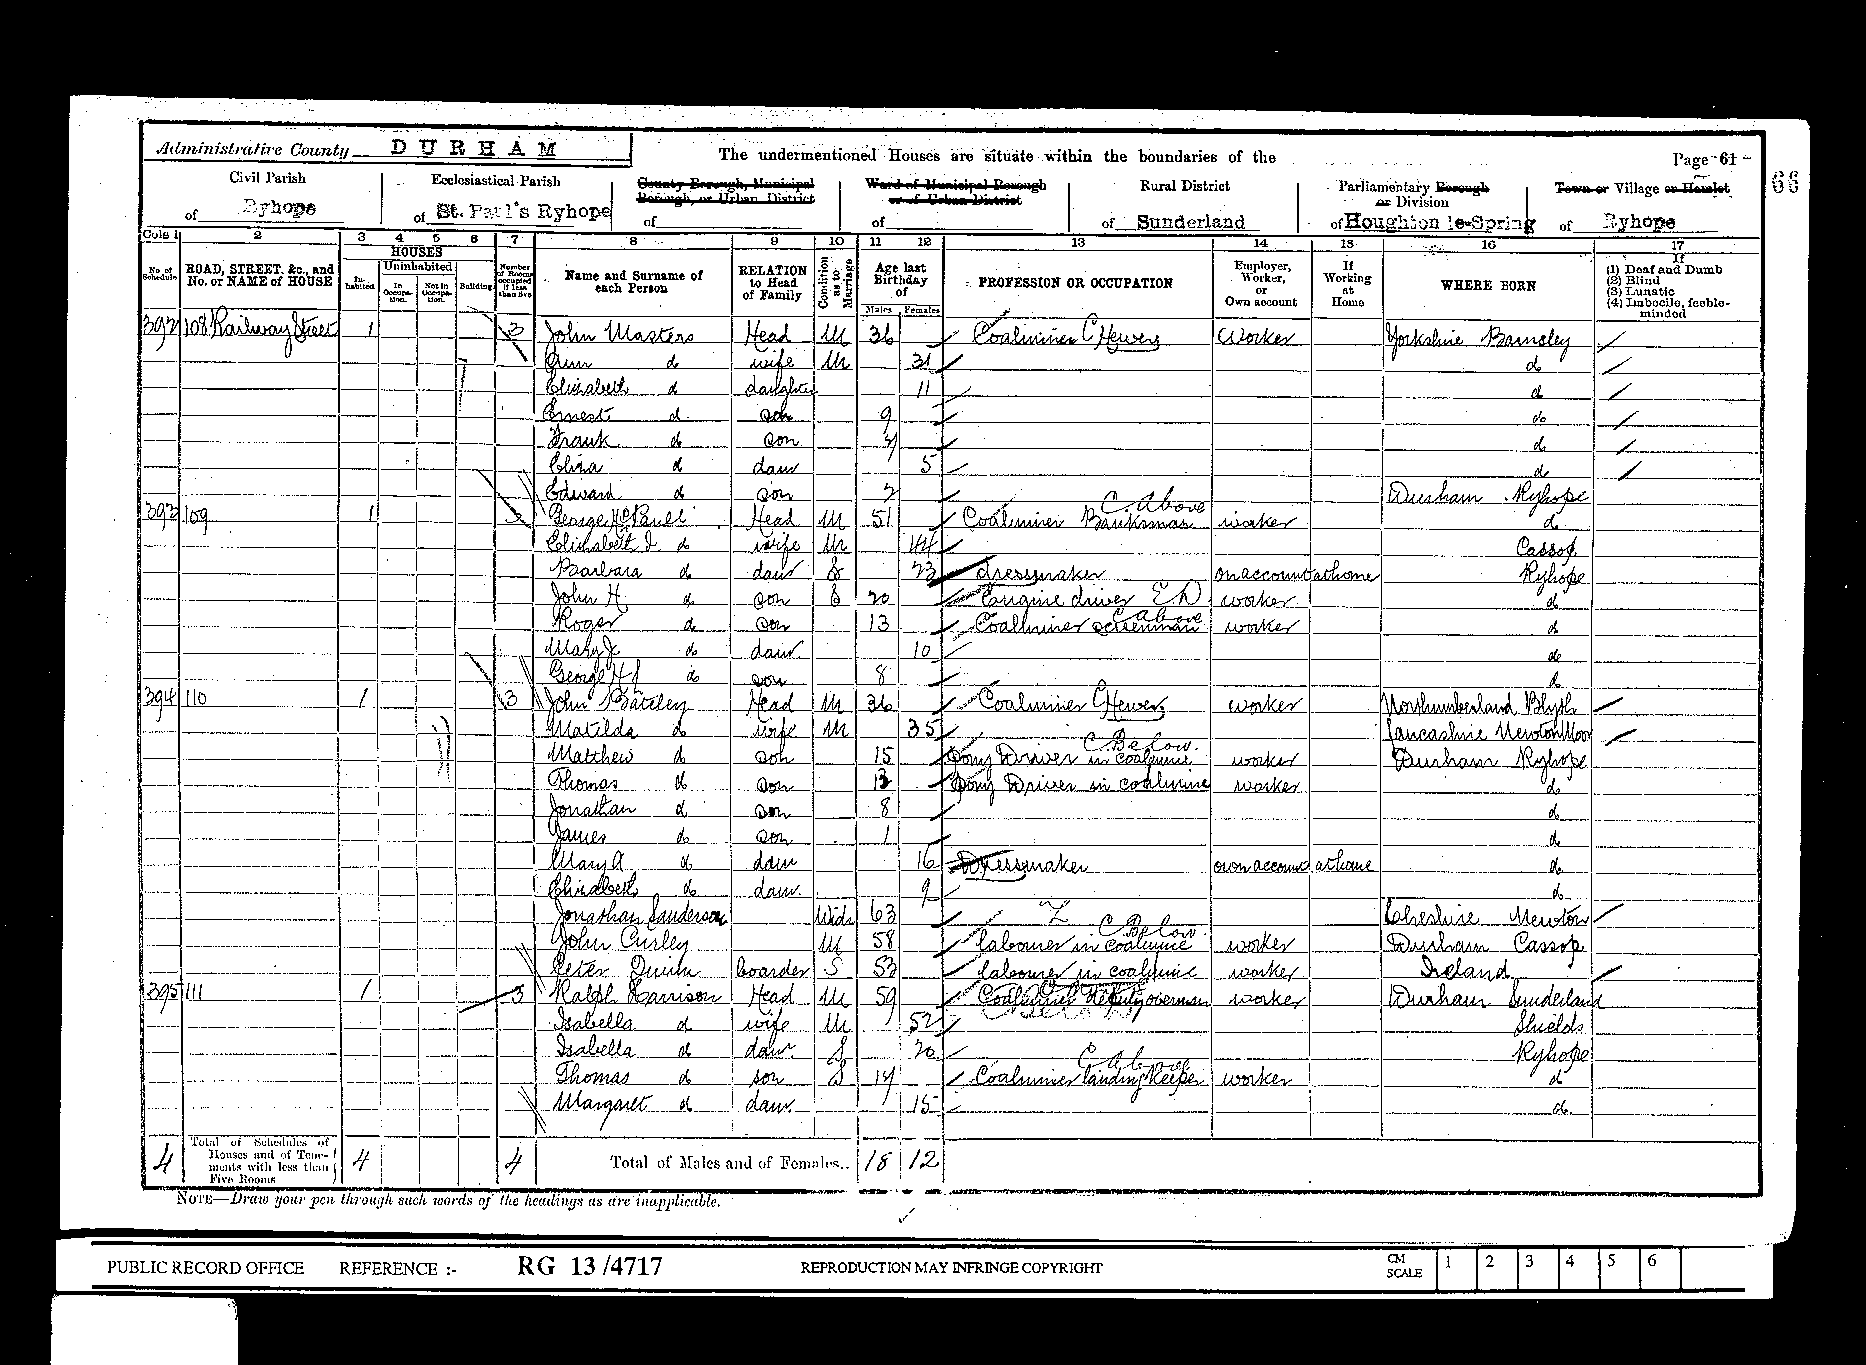 Administrative County DURHAM
The undermentioned Houses are situate within the boundaries of the
Page 61
66
Civil Parish of Ryhope
Ecclesiastical Parish of St. Paul's Ryhope
County Borough, Municipal Borough, or Urban District of
Ward of Municipal Borough or of Urban District of
Rural District of Sunderland
Parliamentary Borough or Division of Houghton le-Spring
Town or Village or Hamlet of Ryhope
Cols 1 2 3 4 5 6 7 8 9 10 11 12 13 14 15 16 17
No. of Schedule
ROAD, STREET, &c., and No. or NAME of HOUSE
HOUSES
Inhabited
Uninhabited
In Occupation.
Not in Occupation.
Building
Number of Rooms occupied if less than five
Name and Surname of each Person
RELATION to Head of Family
Condition as to Marriage
Age last Birthday of
Males Females
PROFESSION OR OCCUPATION
Employer, Worker, or Own account
If Working at Home
WHERE BORN
If (1) Deaf and Dumb (2) Blind (3) Lunatic (4) Imbecile, feeble-minded
392 108 Railway Street 1 3 John Masters Head M 36 Coalminer Hewer Worker Yorkshire Barnsley
Ann do wife M 31 do
Elizabeth do daughter 11 do
Ernest do son 9 do
Frank do son 7 do
Eliza do daur 5 do
Edward do son 2 Durham Ryhope
393 109 1 3 George Head M 51 Coalminer Banksman C Above worker do
Elizabeth J. do wife M 44 Cassop
Barbara do daur S 23 dressmaker on account at home Ryhope
John H. do son S 20 Engine driver worker do
Roger do son 13 Coalminer screenman C above worker do
Mary J. do daur 10 do
George H do son 8 do
394 110 1 3 John Bateley Head M 36 Coalminer Hewer worker Northumberland Blyth
Matilda do wife M 35 Lancashire Newton Moor
Matthew do son 15 Pony Driver in coalmine C Below worker Durham Ryhope
Thomas do son 13 Pony Driver in coalmine worker do
Jonathan do son 8 do
James do son 1 do
Mary A do daur 16 Dressmaker own account at home do
Elizabeth do daur 9 do
Jonathan Sanderson Widr 63 Cheshire Newton
John Curley M 58 labourer in coalmine C Below worker Durham Cassop
Peter boarder S 53 labourer in coalmine worker Ireland
395 111 1 3 Ralph Harrison Head M 59 Coalminer deputy overman Below worker Durham Sunderland
Isabella do wife M 52 Shields
Isabella do daur S 20 Ryhope
Thomas do son S 17 Coalminer landing keeper worker do
Margaret do daur 15 do
4 Total of Schedules of Houses and of Tenements with less than Five Rooms 4 4 Total of Males and of Females.. 18 12
NOTE—Draw your pen through such words of the headings as are inapplicable.
PUBLIC RECORD OFFICE REFERENCE :- RG 13 /4717 REPRODUCTION MAY INFRINGE COPYRIGHT CM SCALE 1 2 3 4 5 6